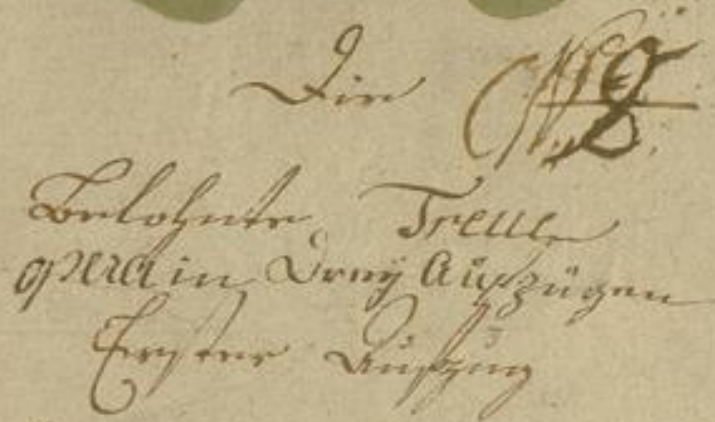 Die
Belohnte Treue
opera in Drey Aufzügen
Erster Aufzug